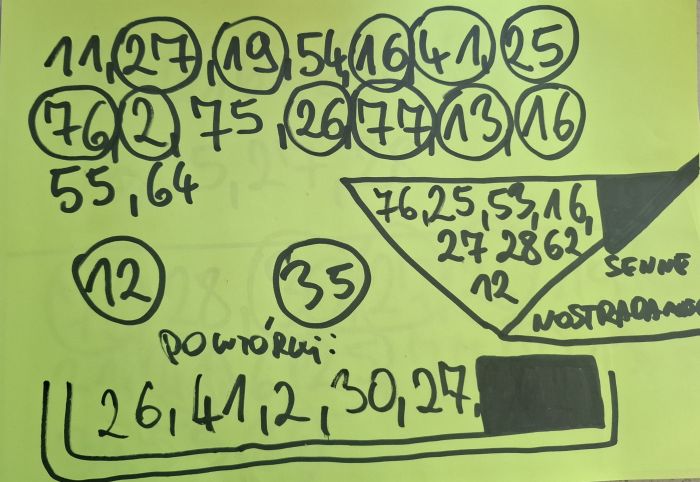 11, 27, 19, 54, 16, 41, 25
76, 2, 75, 26, 77, 13, 16
55, 64
76, 25, 53, 16,
27 28 62
12
SENNE
NOSTRADAMUS
12 35
POWTÓRKI:
26, 41, 2, 30, 27,